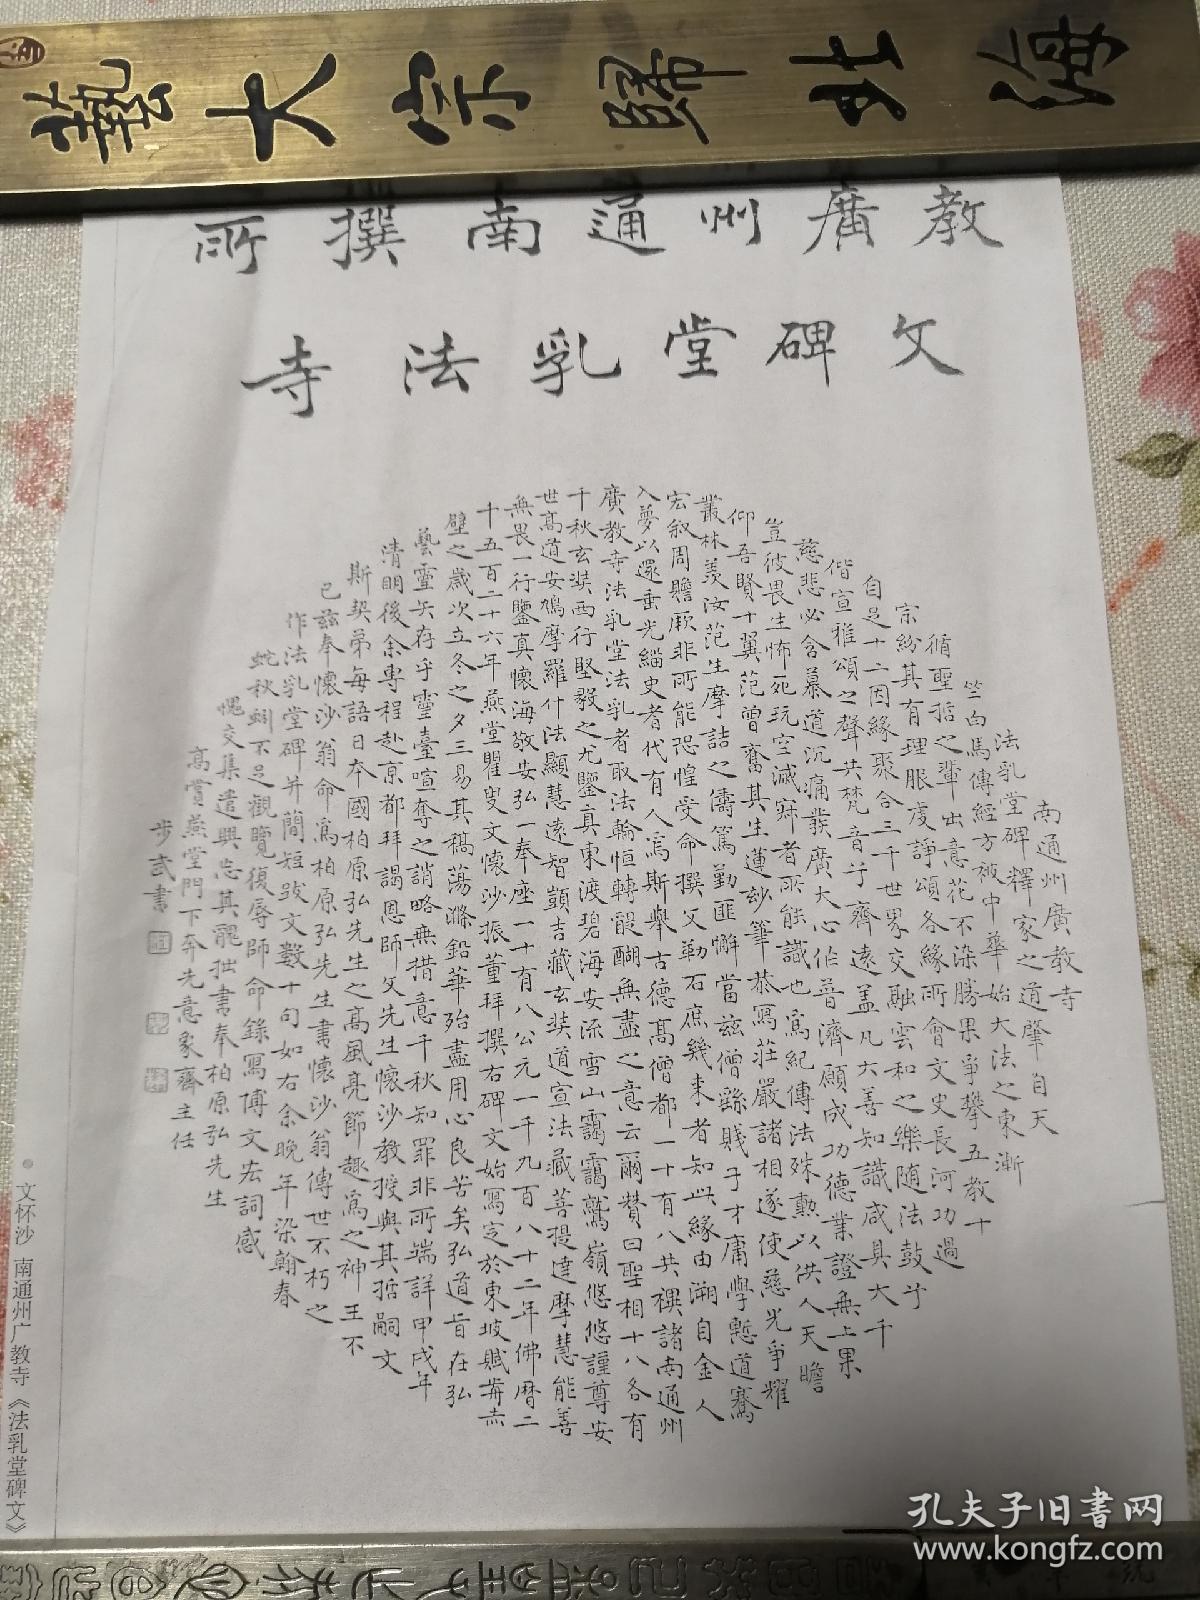 海北歸宗大藝
教廣州通南撰所
文碑堂乳法寺
南通州廣教寺
法乳堂碑釋家之道肇自天
竺白馬傳經方被中華始大法之東漸
循聖哲之輩出意花不染勝果爭攀五教十
宗紛其有理服虔諍頌各緣所會文史長河功過
自足十二因緣聚合三千世界交融雲和之樂随法鼓兮
偕宣雅頌之聲共梵音乎齊遠盖凡大善知識咸具大千
慈悲必含慕道沉痛叢廣大心作普濟願成功德業證無上果
豈彼畏生怖死玩空滅寂者所能識也爲紀傳法殊勳以供人天瞻
仰吾賢十翼范曾奮其生蓮妙筆恭寫莊嚴諸相遂使慈光爭耀
叢林羨汝范生摩詰之儔篤勤匪懈當兹僧繇賤子才庸學慙道騫
宏叙周贍厥非所能恐惶受命撰文勒石庶幾来者知此緣由溯自金人
入夢以還垂光緇史者代有人焉斯舉古德髙僧都一十有八共禩諸南通州
廣教寺法乳堂法乳者取法輪恒轉醍醐無盡之意云爾贊曰聖相十八各有
千秋玄奘西行堅毅之尤鑒真東渡碧海安流雪山靄靄鷲嶺悠悠謹尊安
世髙道安鳩摩羅什法顯慧遠智顗吉藏玄奘道宣法藏菩提達摩慧能善
無畏一行鑒真懷海敬安弘一奉座一十有八公元一千九百八十二年佛曆二
千五百二十六年燕堂瞿叟文懷沙振董拜撰右碑文始寫定於東坡賦前赤
壁之歲次立冬之夕三易其稿蕩滌鉛華殆盡用心良苦矣弘道旨在弘
藝靈矢存乎靈臺喧奪之誚略無措意千秋知罪非所端詳甲戌年
清明後余專程赴京都拜謁恩師文先生懷沙教授與其哲嗣文
斯契弟每語日本國柏原弘先生之髙風亮節趣爲之神王不
已兹奉懷沙翁命爲柏原弘先生書懷沙翁傳世不朽之
作法乳堂碑并簡短跋文數十句如右余晚年染翰春
蛇秋蚓不足觀覽復辱師命錄寫博文宏詞感
愧交集遣興忘其醜拙書奉柏原弘先生
髙賞燕堂門下弃先意象齋主任
步武書
●文怀沙 南通州广教寺《法乳堂碑文》
孔夫子旧書网
www.kongfz.com